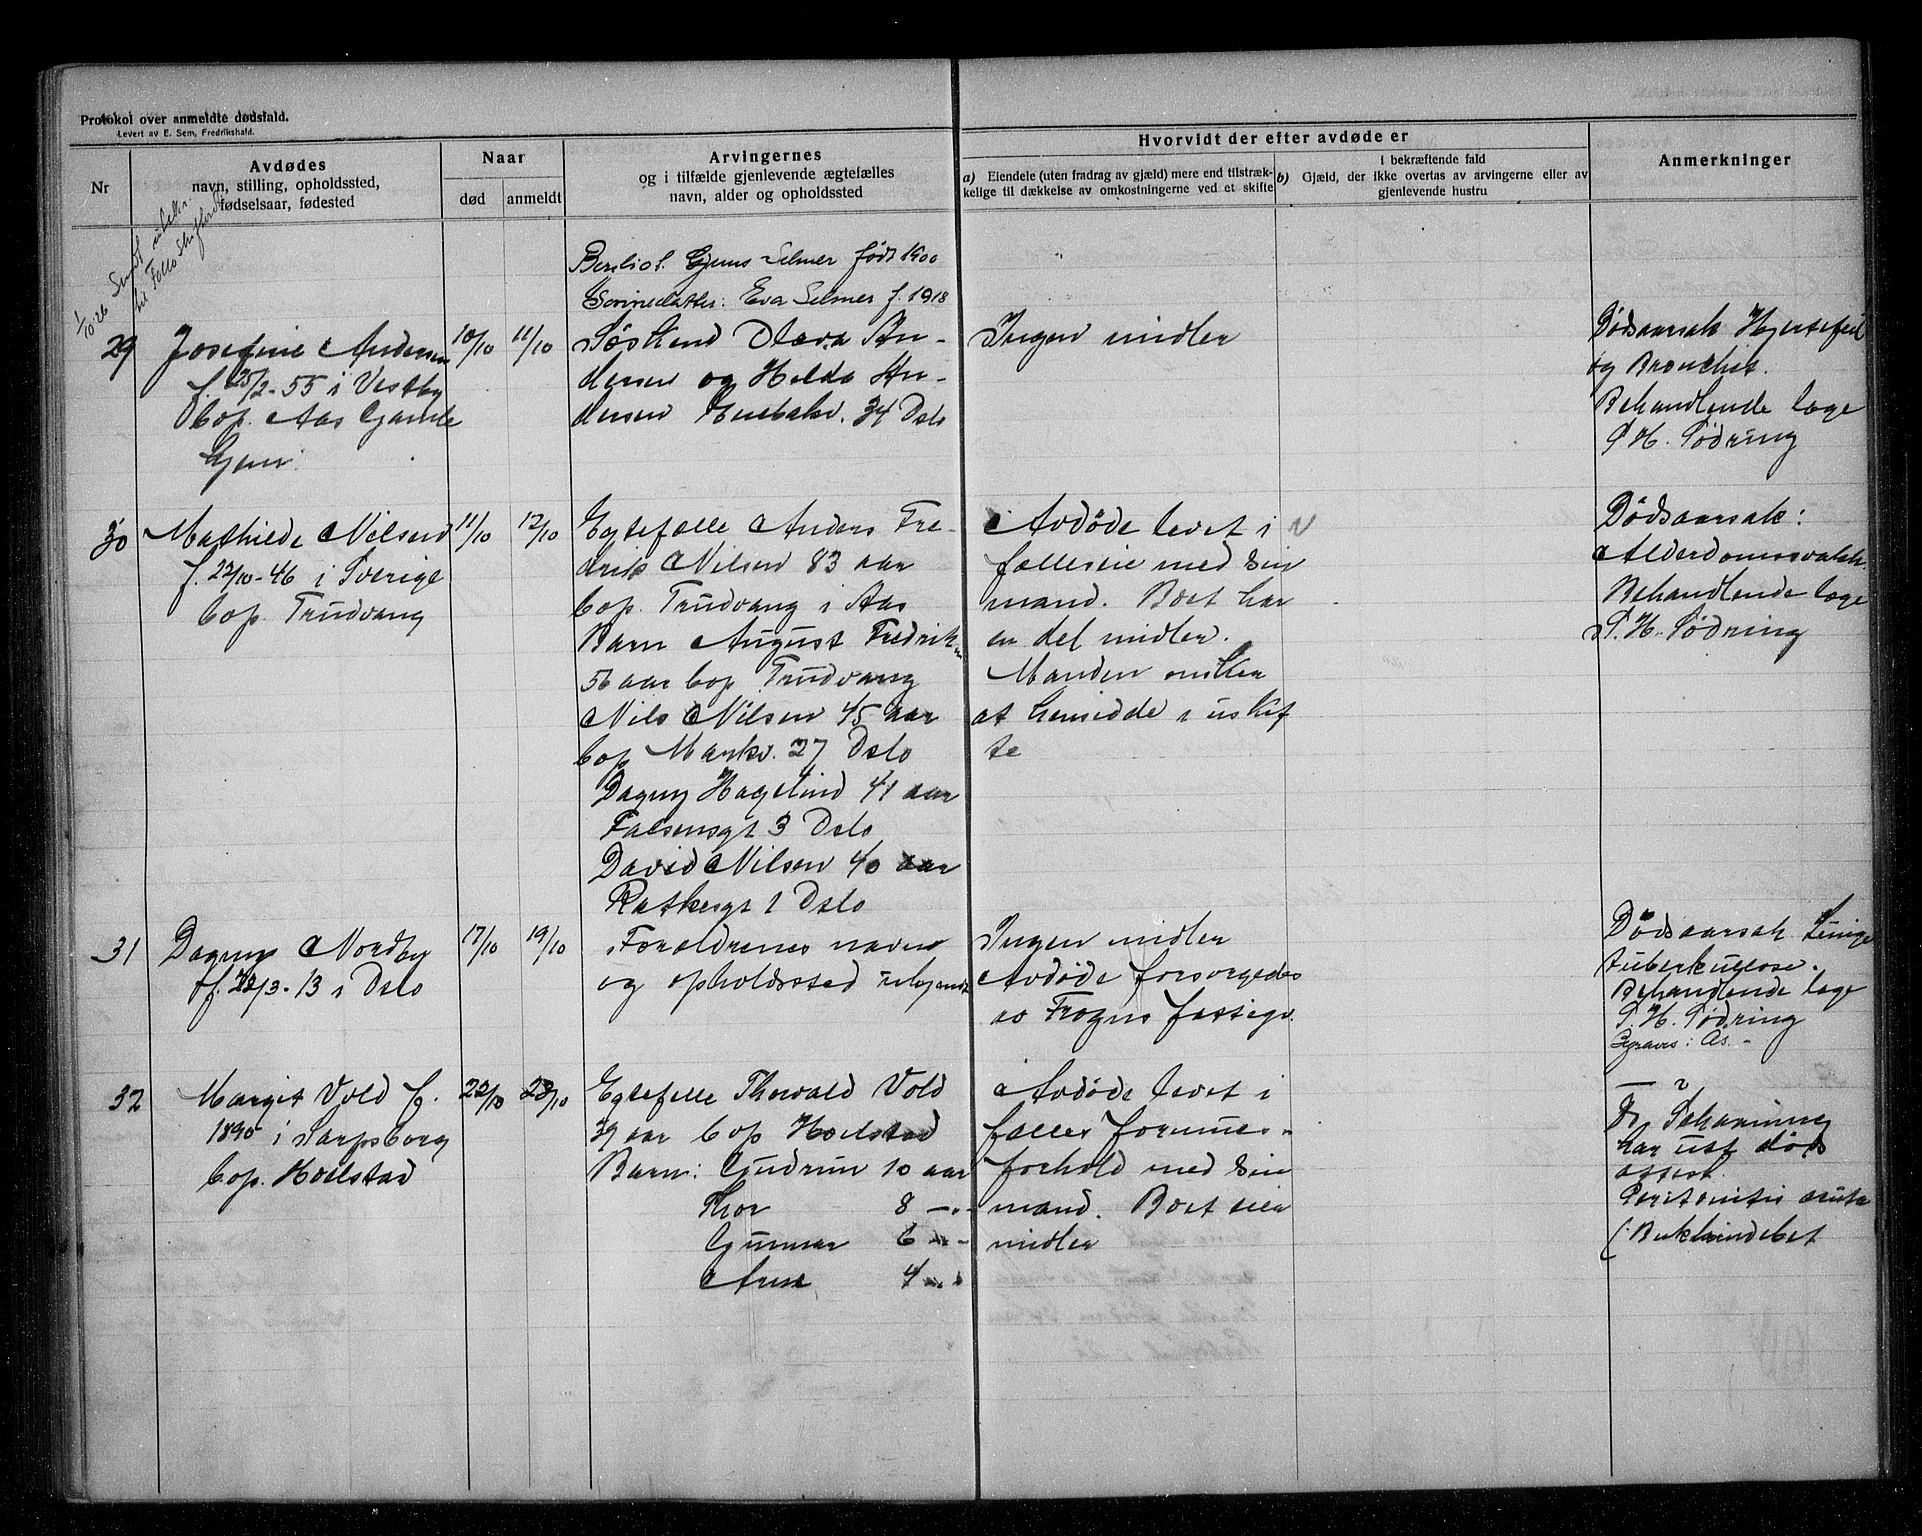 Protokol over anmeldte dødsfald.
Levert av E. Sem, Fredrikshald.
Nr
Avdødes
navn, stilling, opholdssted,
fødselsaar, fødested
Naar
død
anmeldt
Arvingernes
og i tilfælde gjenlevende ægtefælles
navn, alder og opholdssted
Hvorvidt der efter avdøde er
a) Eiendele (uten fradrag av gjæld) mere end tilstræk-
kelige til dækkelse av omkostningerne ved et skifte
i bekræftende fald
b) Gjæld, der ikke overtas av arvingerne eller av
gjenlevende hustru
Anmerkninger
1/10 26 Sendt
til Follo
Gjems Selmer født 1900
Sønnedatter: Eva Selmer f. 1918
29
Josefine Andersen
f. 25/2-55 i Vestby
bop. Aas Gamle
hjem
10/10
11/10
Søskend Olava An-
dersen og Hilda An-
dersen 34 Oslo
Ingen midler
Dødsaarsak Hjertefeil
og Bronchit.
Behandlende læge
P. H. Sødring
30
Mathilde Nilsen
f. 22/10-46 i Sverige
bop. Trudvang
11/10
12/10
Egtefælle Anders Fre-
drik Nilsen 83 aar
bop. Trudvang i Aas
Barn August Fredrik
56 aar bop Trudvang
Nils Nilsen 45 aar
bop Markv. 27 Oslo
Dagny Hagelind 41 aar
Falsensgt 3 Oslo
David Nilsen 40 aar
Rathkesgt 1 Oslo
Avdøde levet i
fælleseie med sin
mand. Boet har
en del midler.
Manden ønsker
at hensidde i uskif
te
Dødsaarsak:
Alderdomssvakh.
Behandlende læge
P. H. Sødring
31
Dagny Nordby
f. 22/3-13 i Oslo
17/10
19/10
Forældrenes navn
og opholdssted ubekjendt
Ingen midler
Avdøde forsørgedes
av Frogns fattigv.
Dødsaarsak Lunge
tuberkulose.
Behandlende læge
P. H. Sødring
Begraves i Ås.-
32
Margit Vold f.
1890 i Sarpsborg
bop. Holstad
22/10
23/10
Egtefelle Thorvald Vold
39 aar bop Holstad
Barn: Gudrun 10 aar
Thor 8 -"-
Gunnar 6 -"-
Arne 4 -"-
Avdøde levet i
fælles formues-
forhold med sin
mand. Boet eier
midler
— ?
Dr. Schanning
har utst døds
attest
Peritonitis acuta
(: Bukhindebet